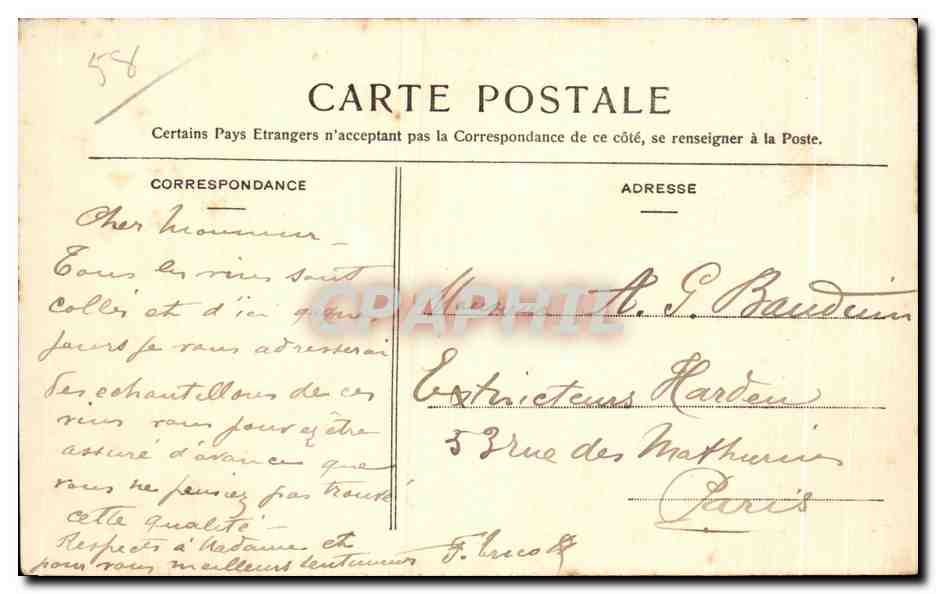 58
CARTE POSTALE
Certains Pays Etrangers n'acceptant pas la Correspondance de ce côté, se renseigner à la Poste.
CORRESPONDANCE
Cher Monsieur
Tous les vins sont
collés et d'ici quques
jours je vous adresserai
des echantillons de ces
vins vous pouvez être
assuré d'avance que
vous ne pensiez pas trouvé
cette qualité -
Respects à Madame et
pour vous meilleurs sentiments
ADRESSE
A. G. Bauduin
Extincteurs Harden
53 rue des Mathurins
Paris
CPAPHIL